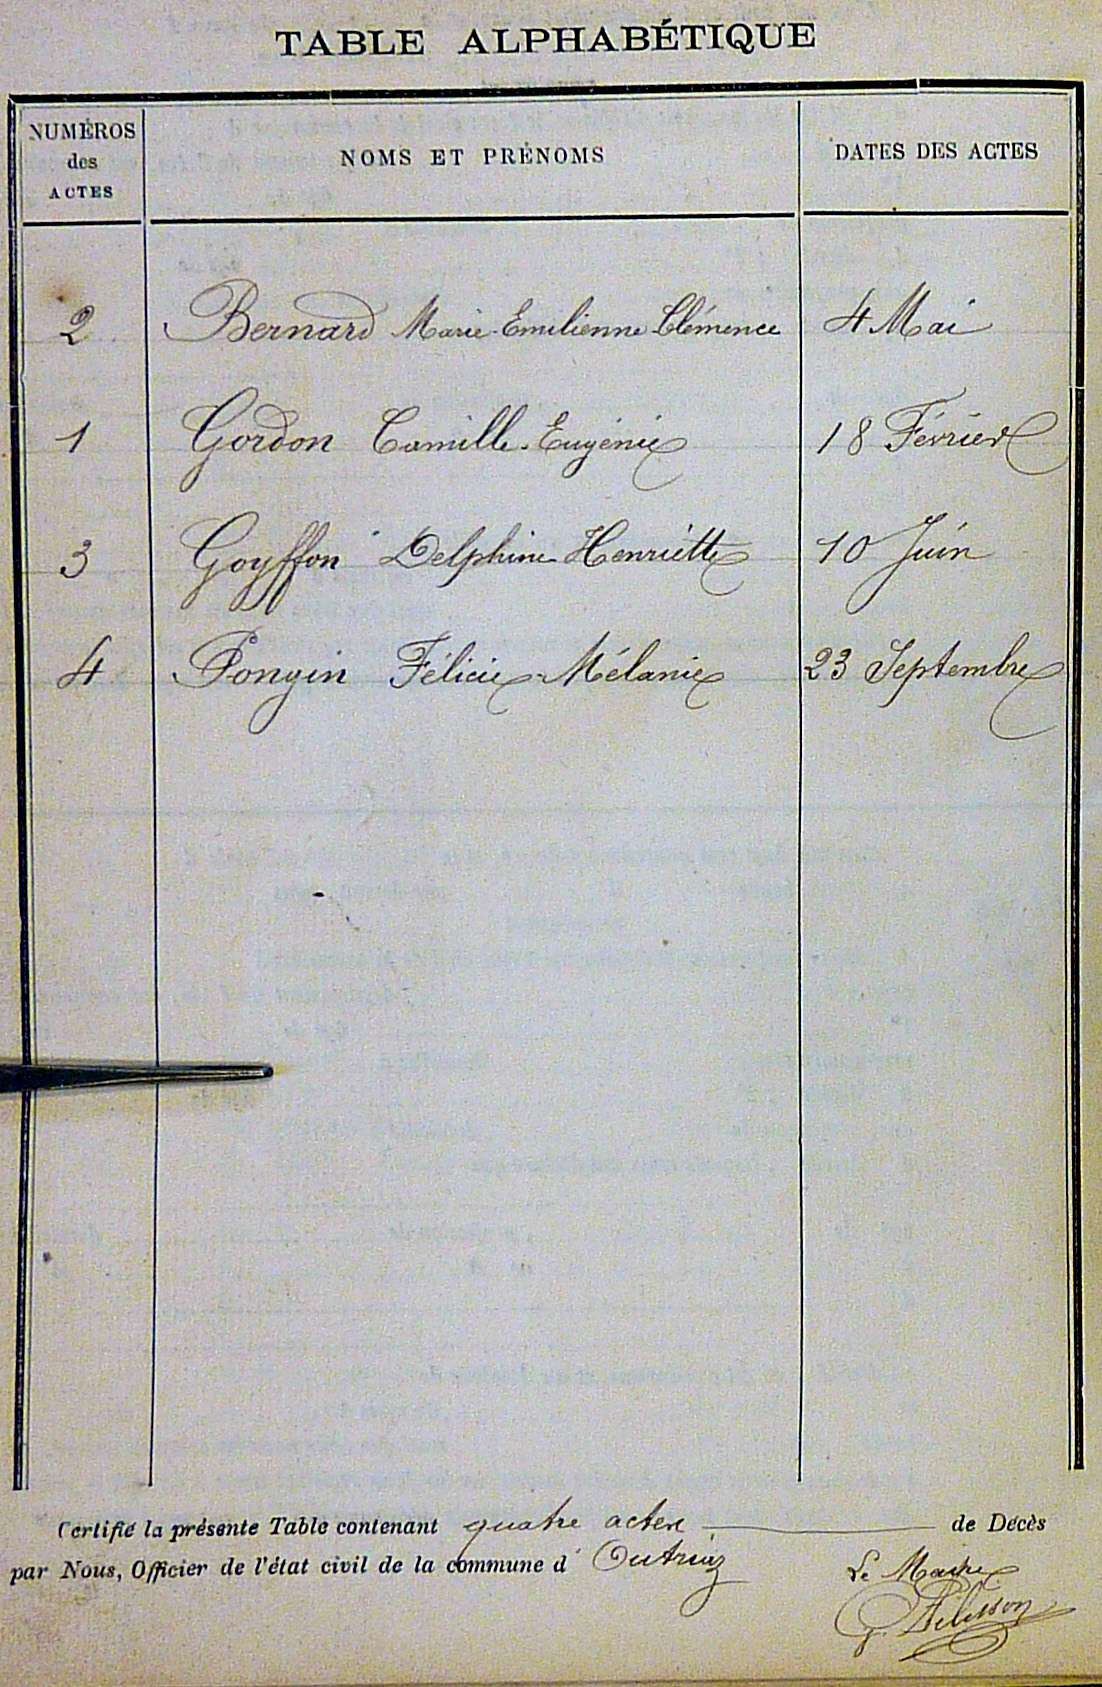 TABLE ALPHABÉTIQUE
NUMÉROS des ACTES NOMS ET PRÉNOMS DATES DES ACTES
2 Bernard Marie Emilienne Clémence 4 Mai
1 Gordon Camille Eugénie 18 Février
3 Goyffon Delphine Henriette 10 Juin
4 Pongin Félicie Mélanie 23 Septembre
Certifié la présente Table contenant quatre actes de Décès
par Nous, Officier de l'état civil de la commune d' Outriaz
Le Maire